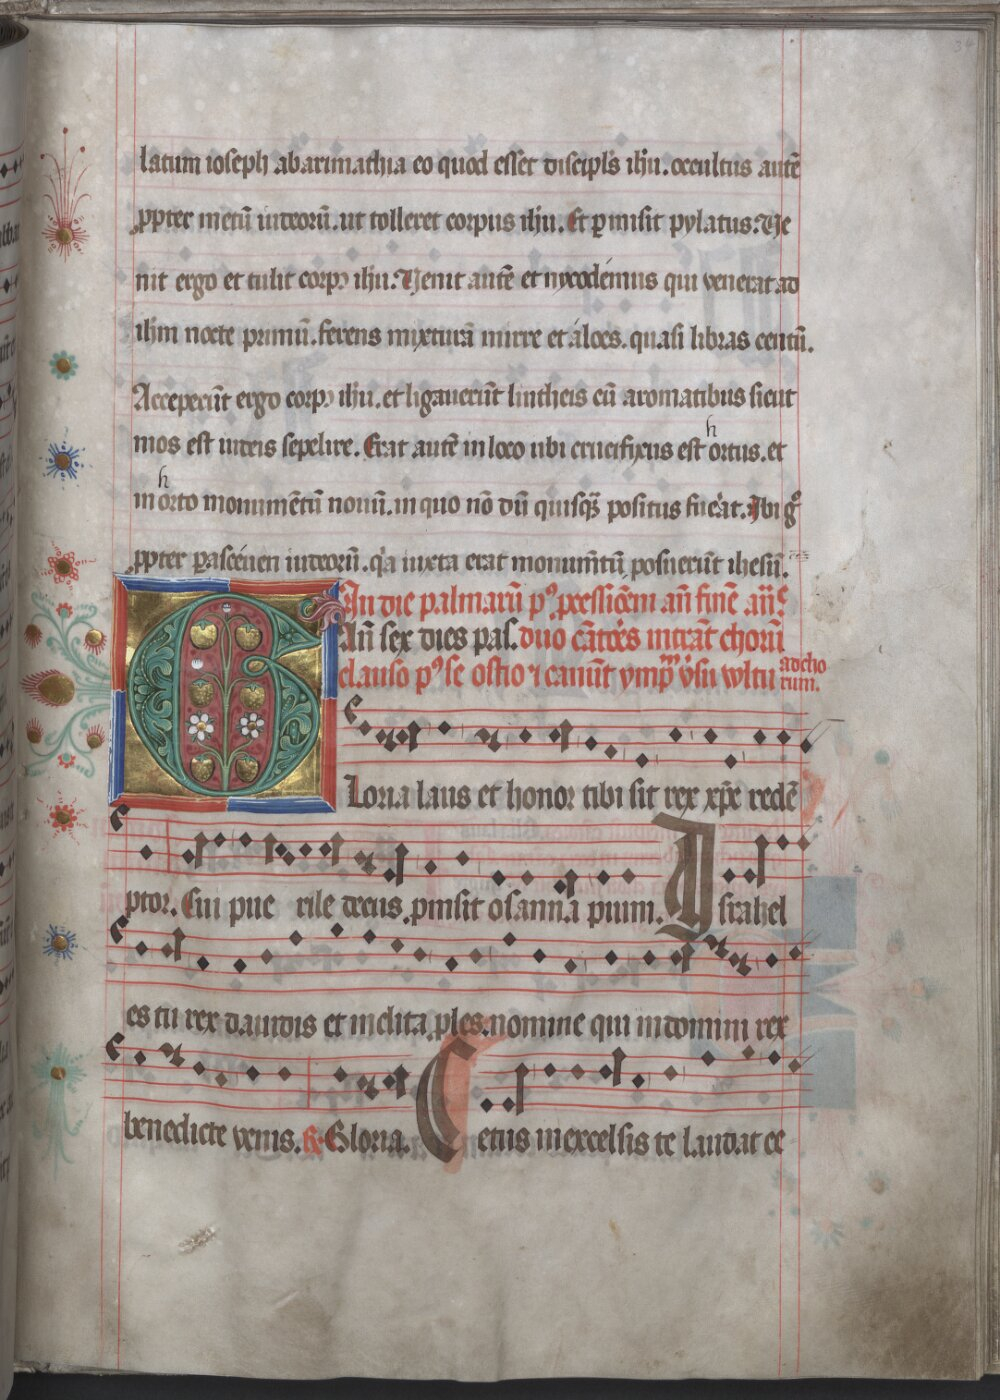 latum ioseph abarimathia eo quod esset discipls ihu. occultus autē
ppter metū iudeorū. ut tolleret corpus ihu. Et pmisit pylatus. Ve
nit ergo et tulit corpꝰ ihu. Venit autē et nycodemus qui venerat ad
ihm nocte primū. ferens mixturā mirre et aloes. quasi libras centū.
Acceperūt ergo corpꝰ ihu. et ligauerūt lintheis cū aromatibus sicut
mos est iudeis sepelire. Erat autē in loco ubi crucifixus est hortus. et
in horto monumētū nouū. in quo nō dū quisqꝫ positus fuerat. Ibi gͦ
ppter parasceuen iudeorū. qa iuxta erat monumtū posuerūt ihesū.
In die palmarū pꝰ pcessiōem añ finē añe
Añ sex dies pas. duo cātores intrāt chorū
clauso pꝰ se ostio ⁊ canūt ymp̄ v̄su vultu ad cho
rum.
Gloria laus et honor tibi sit rex xpe redē
ptor. Cui pue rile decus prnsit osanna pium. Israhel
es tu rex dauidis et inclita ples. nomine qui in domini rex
benedicte venis. R. Gloria. Cetus in excelsis te laudat ce